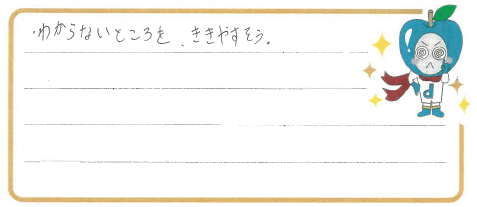 ・わからないところを、ききやすそう。
d